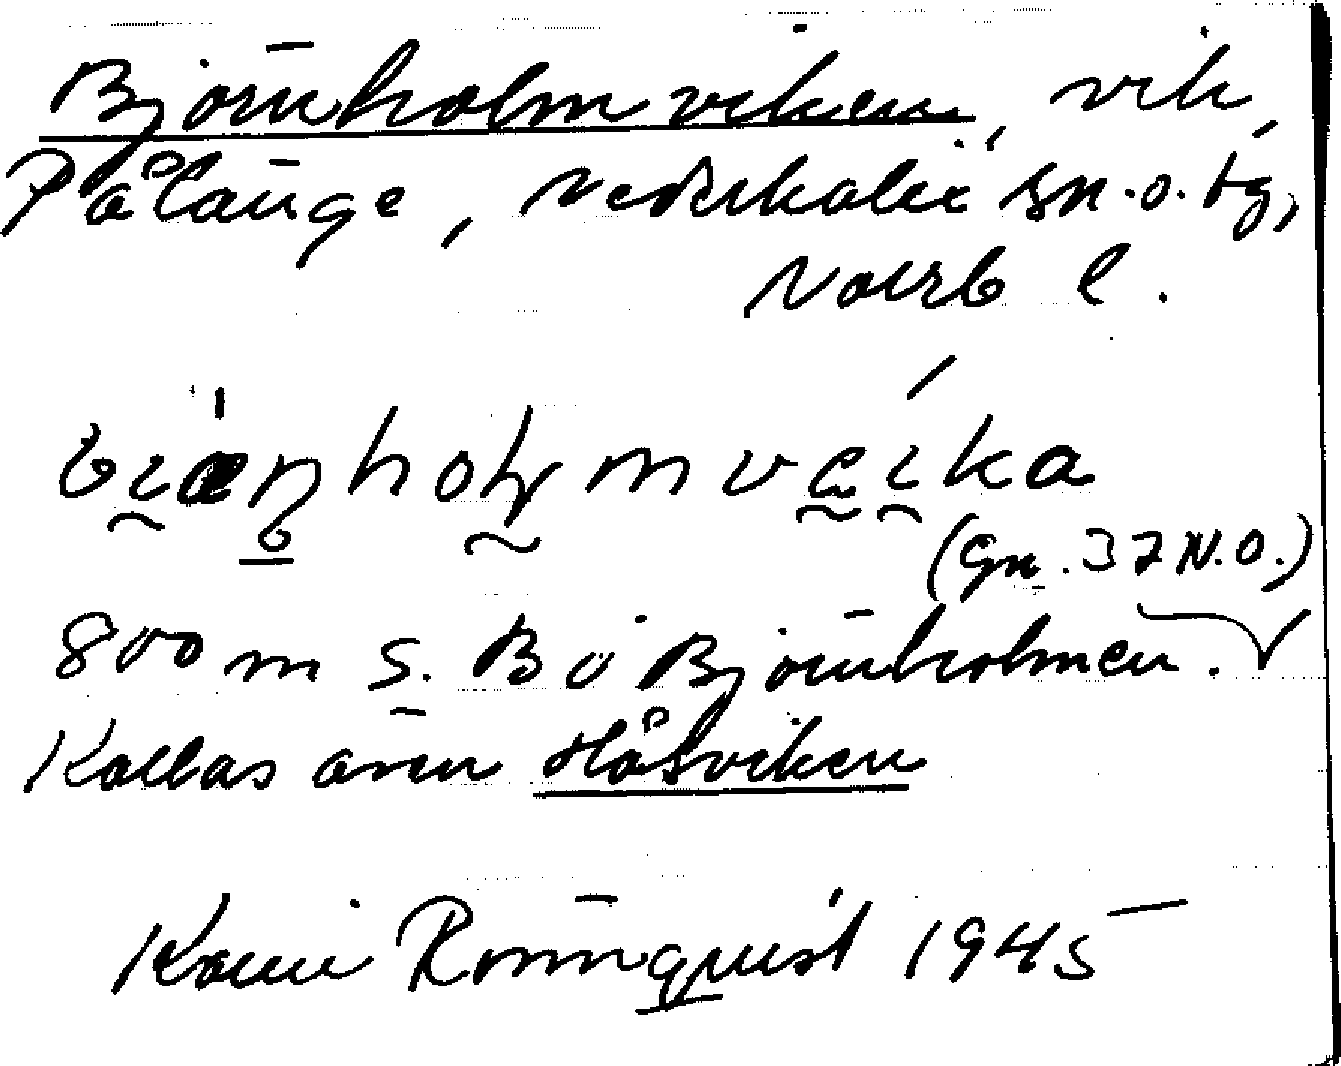 Björnholmviken, vik,
Pålänge, Nederkalix sn. o. tg,
Norrb l.
(Gn. 37 N.O.)
800 m S. Bö Björnholmen.
Kallas även Håsviken
Rönnquist 1945